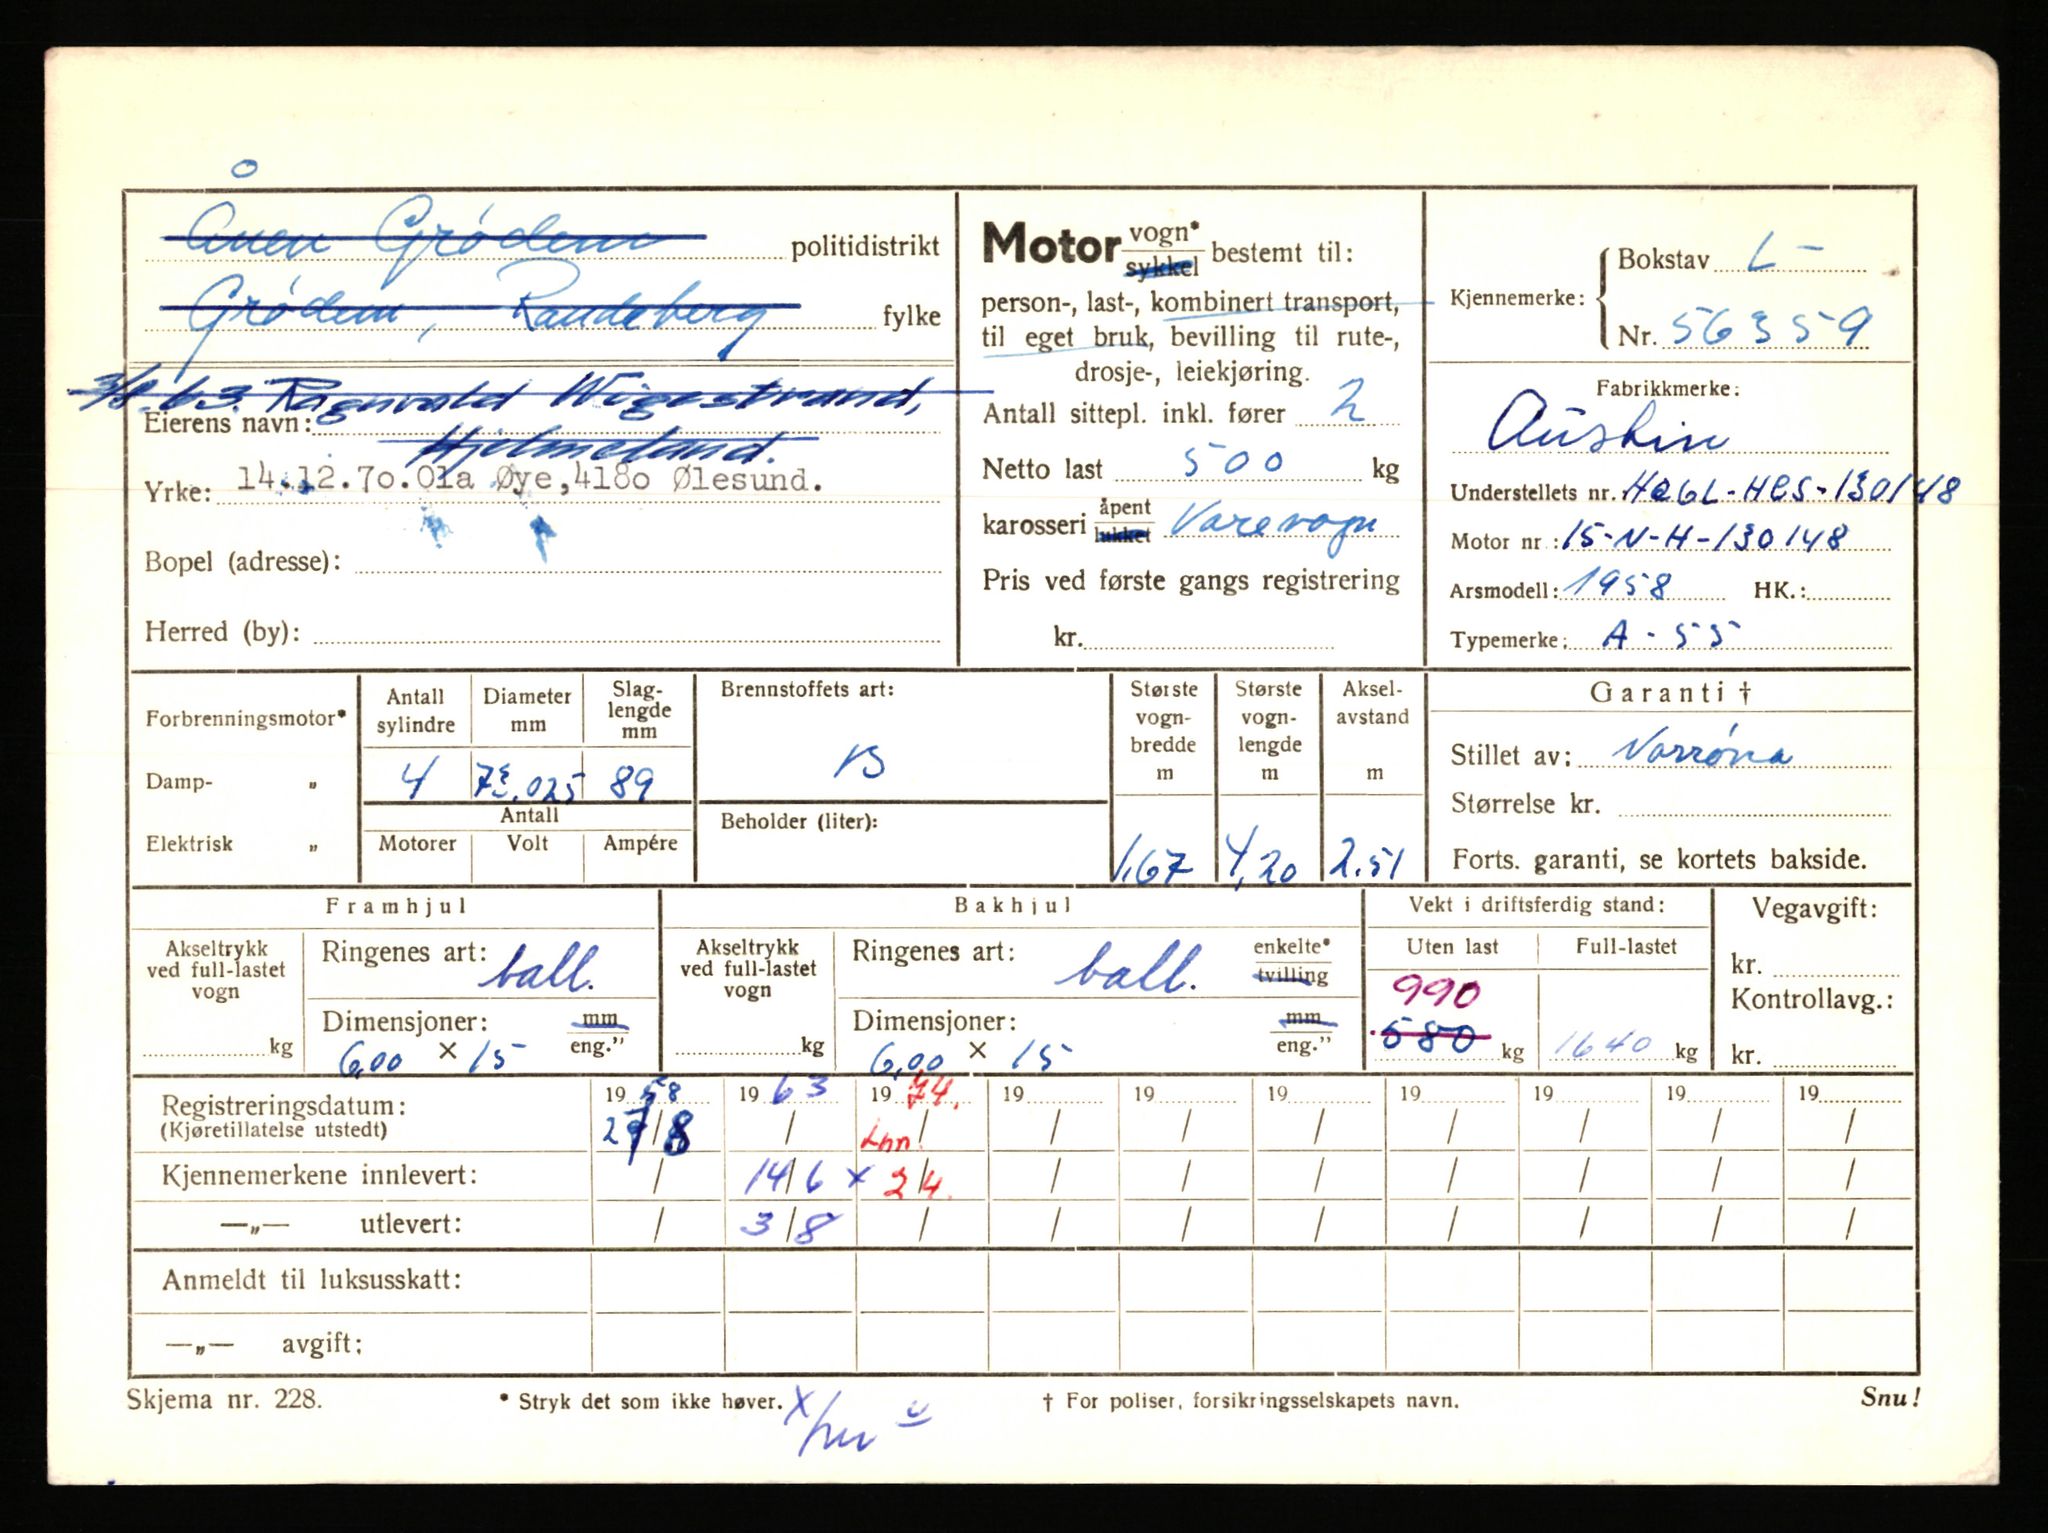 Ånen Grødem politidistrikt
Grødem, Randeberg fylke
3/8.63. Ragnvald Wigestrand,
Eierens navn:
Hjelmeland.
Yrke: 14.12.70.Ola Øye,4180 Ølesund.
Bopel (adresse):
Herred (by):
Motor vogn* sykkel bestemt til:
person-, last-, kombinert transport,
til eget bruk, bevilling til rute-,
drosje-, leiekjøring.
Antall sittepl. inkl. fører 2
Netto last 500 kg
karosseri åpent lukket Varevogn
Pris ved første gangs registrering
kr.
Kjennemerke: Bokstav L-
Nr. 56359
Fabrikkmerke:
Austin
Understellets nr. HCS-130148
Motor nr.: 15-N-H-130148
Arsmodell: 1958 HK.:
Typemerke: A-55
Forbrenningsmotor*
Damp- „
Elektrisk „
Antall sylindre
4
Diameter mm
73.025
Slag-lengde mm
89
Antall
Motorer Volt Ampére
Brennstoffets art:
B
Beholder (liter):
Største vogn-bredde m
1.67
Største vogn-lengde m
4,20
Aksel-avstand m
2.51
Garanti †
Stillet av: Norrøna
Størrelse kr.
Forts. garanti, se kortets bakside.
Framhjul
Akseltrykk ved full-lastet vogn
kg
Ringenes art: ball.
Dimensjoner: mm eng."
6,00 × 15
Bakhjul
Akseltrykk ved full-lastet vogn
kg
Ringenes art: ball. enkelte* tvilling
Dimensjoner: mm eng."
6,00 × 15
Vekt i driftsferdig stand:
Uten last Full-lastet
990
580 kg 1640 kg
Vegavgift:
kr.
Kontrollavg.:
kr.
Registreringsdatum: 19 58 19 63 19 74. 19 19 19 19 19 19 19
(Kjøretillatelse utstedt) / 8 / Inn. / / / / / / / /
Kjennemerkene innlevert: / 14/6 x 2/4. / / / / / / /
—„— utlevert: / 3/8 / / / / / / / /
Anmeldt til luksusskatt:
—„— avgift:
Skjema nr. 228.
* Stryk det som ikke høver.
† For poliser, forsikringsselskapets navn.
Snu!